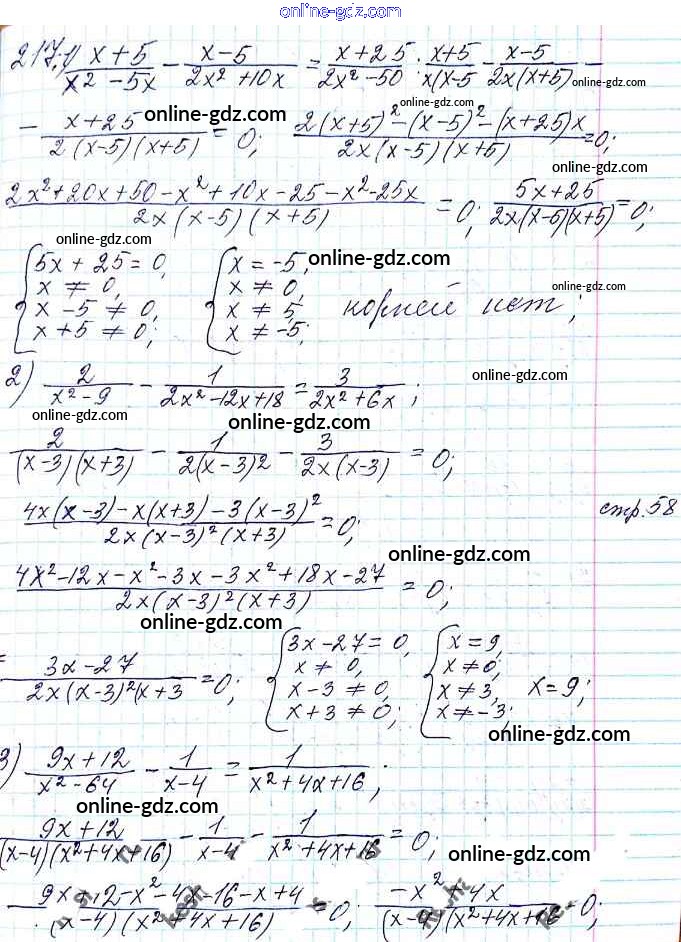 online-gdz.com
217.1) (x+5)/(x² - 5x) - (x-5)/(2x² + 10x) = (x+25)/(2x² - 50); (x+5)/(x(x-5) - (x-5)/(2x(x+5)) -
online-gdz.com
online-gdz.com
online-gdz.com
- (x+25)/(2(x-5)(x+5)) = 0; (2(x+5)² - (x-5)² - (x+25)x)/(2x(x-5)(x+5)) = 0;
online-gdz.com
(2x² + 20x + 50 - x² + 10x - 25 - x² - 25x)/(2x(x-5)(x+5)) = 0; (5x + 25)/(2x(x-5)(x+5)) = 0;
online-gdz.com
online-gdz.com
{ 5x + 25 = 0, { x = -5,
x ≠ 0, x ≠ 0,
online-gdz.com
x - 5 ≠ 0, x ≠ 5, корней нет;
x + 5 ≠ 0; x ≠ -5;
2) 2/(x² - 9) - 1/(2x² - 12x + 18) = 3/(2x² + 6x);
online-gdz.com
online-gdz.com
online-gdz.com
2/((x-3)(x+3)) - 1/(2(x-3)²) - 3/(2x(x-3)) = 0;
(4x(x-3) - x(x+3) - 3(x-3)²)/(2x(x-3)²(x+3)) = 0;
стр. 58
online-gdz.com
(4x² - 12x - x² - 3x - 3x² + 18x - 27)/(2x(x-3)²(x+3)) = 0;
online-gdz.com
= (3x - 27)/(2x(x-3)²(x+3) = 0; { 3x - 27 = 0, { x = 9,
x ≠ 0, x ≠ 0,
x - 3 ≠ 0, x ≠ 3, x = 9;
x + 3 ≠ 0; x ≠ -3;
online-gdz.com
3) (9x + 12)/(x² - 64) - 1/(x-4) = 1/(x² + 4x + 16);
online-gdz.com
(9x + 12)/((x-4)(x² + 4x + 16)) - 1/(x-4) - 1/(x² + 4x + 16) = 0;
online-gdz.com
(9x + 12 - x² - 4x - 16 - x + 4)/((x-4)(x² + 4x + 16)) = 0; (-x² + 4x)/((x-4)(x² + 4x + 16 = 0;